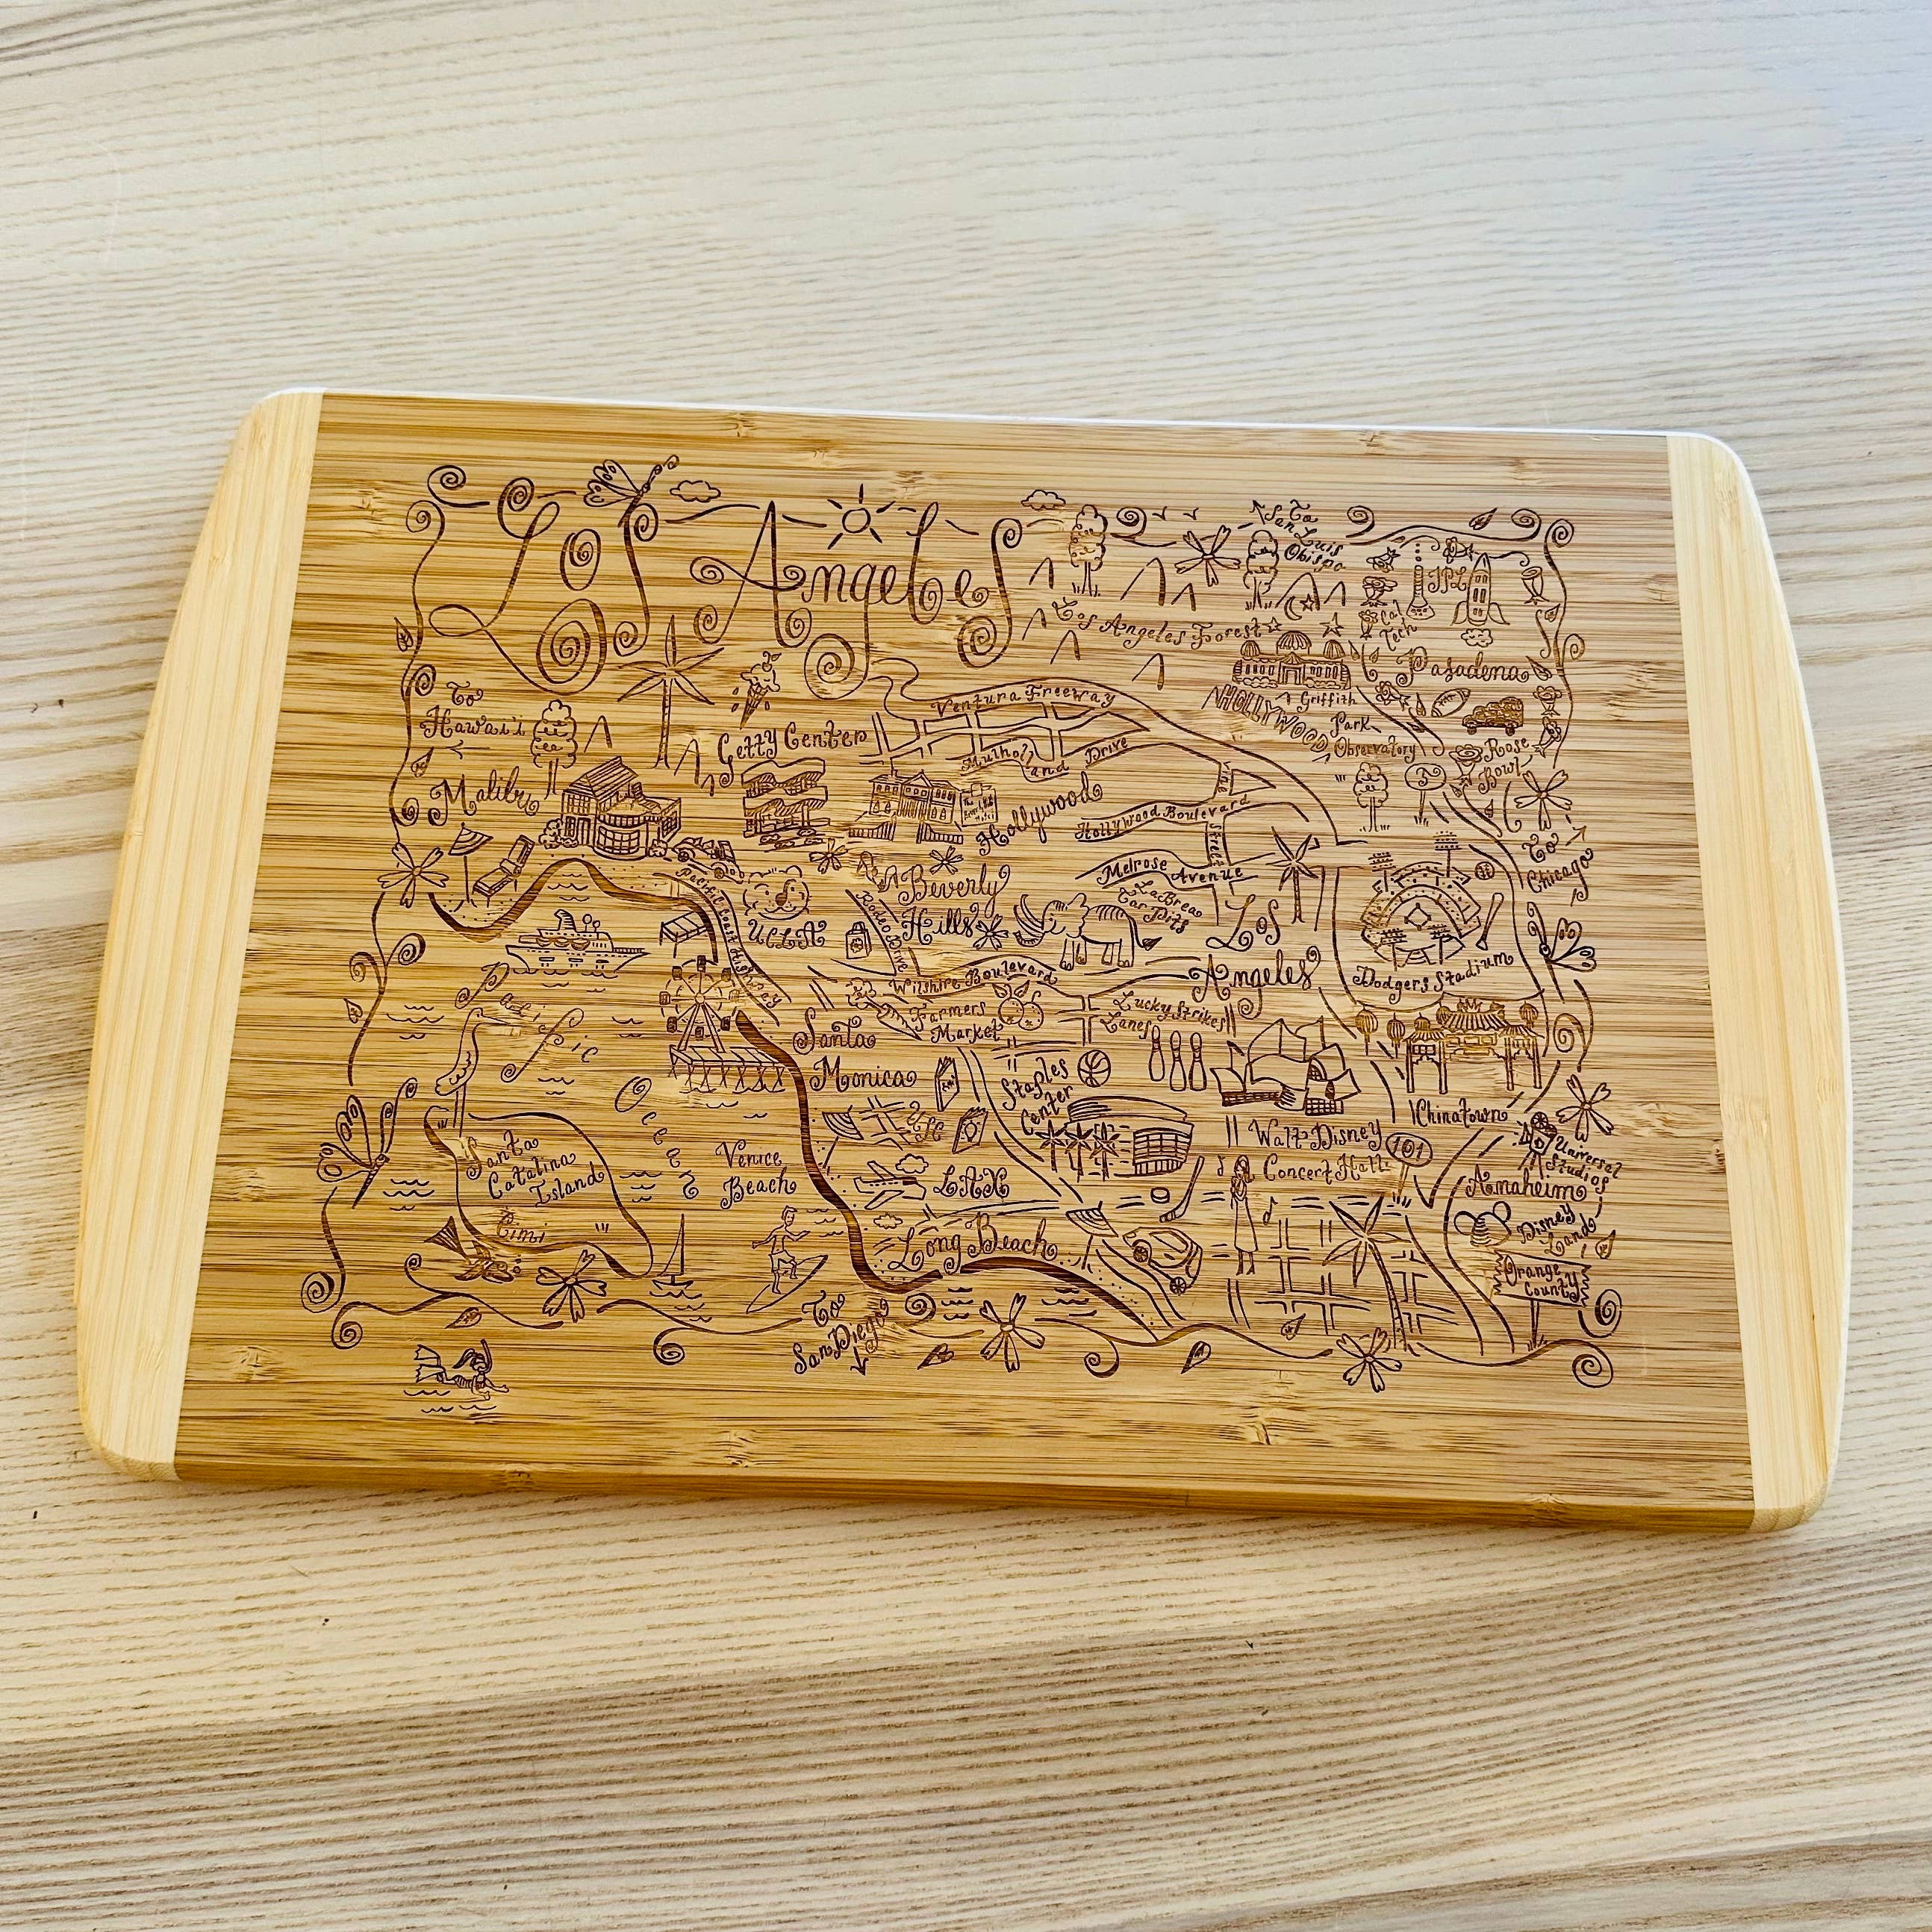 Los Angeles
To
San Luis
Obispo
JPL
Cal
Tech
Los Angeles Forest
Pasadena
To
Hawai'i
HOLLYWOOD
Griffith
Park
Observatory
Rose
Bowl
Ventura Freeway
Mulholland Drive
Getty Center
Malibu
Hollywood
Vine
Street
Hollywood Boulevard
Melrose
Avenue
To
Chicago
Pacific Coast Highway
UCLA
Beverly
Hills
Rodeo Drive
LaBrea
Tar Pits
Los
Angeles
Dodgers Stadium
Wilshire Boulevard
Farmers
Market
Lucky Strikes
Lanes
Pacific
Ocean
Santa
Monica
Staples
Center
Chinatown
Walt Disney
Concert Hall
101
Universal
Studios
Anaheim
Disney
Land
Orange
County
Santa
Catalina
Island
Cimi
Venice
Beach
USC
LAX
Long Beach
To
San Diego